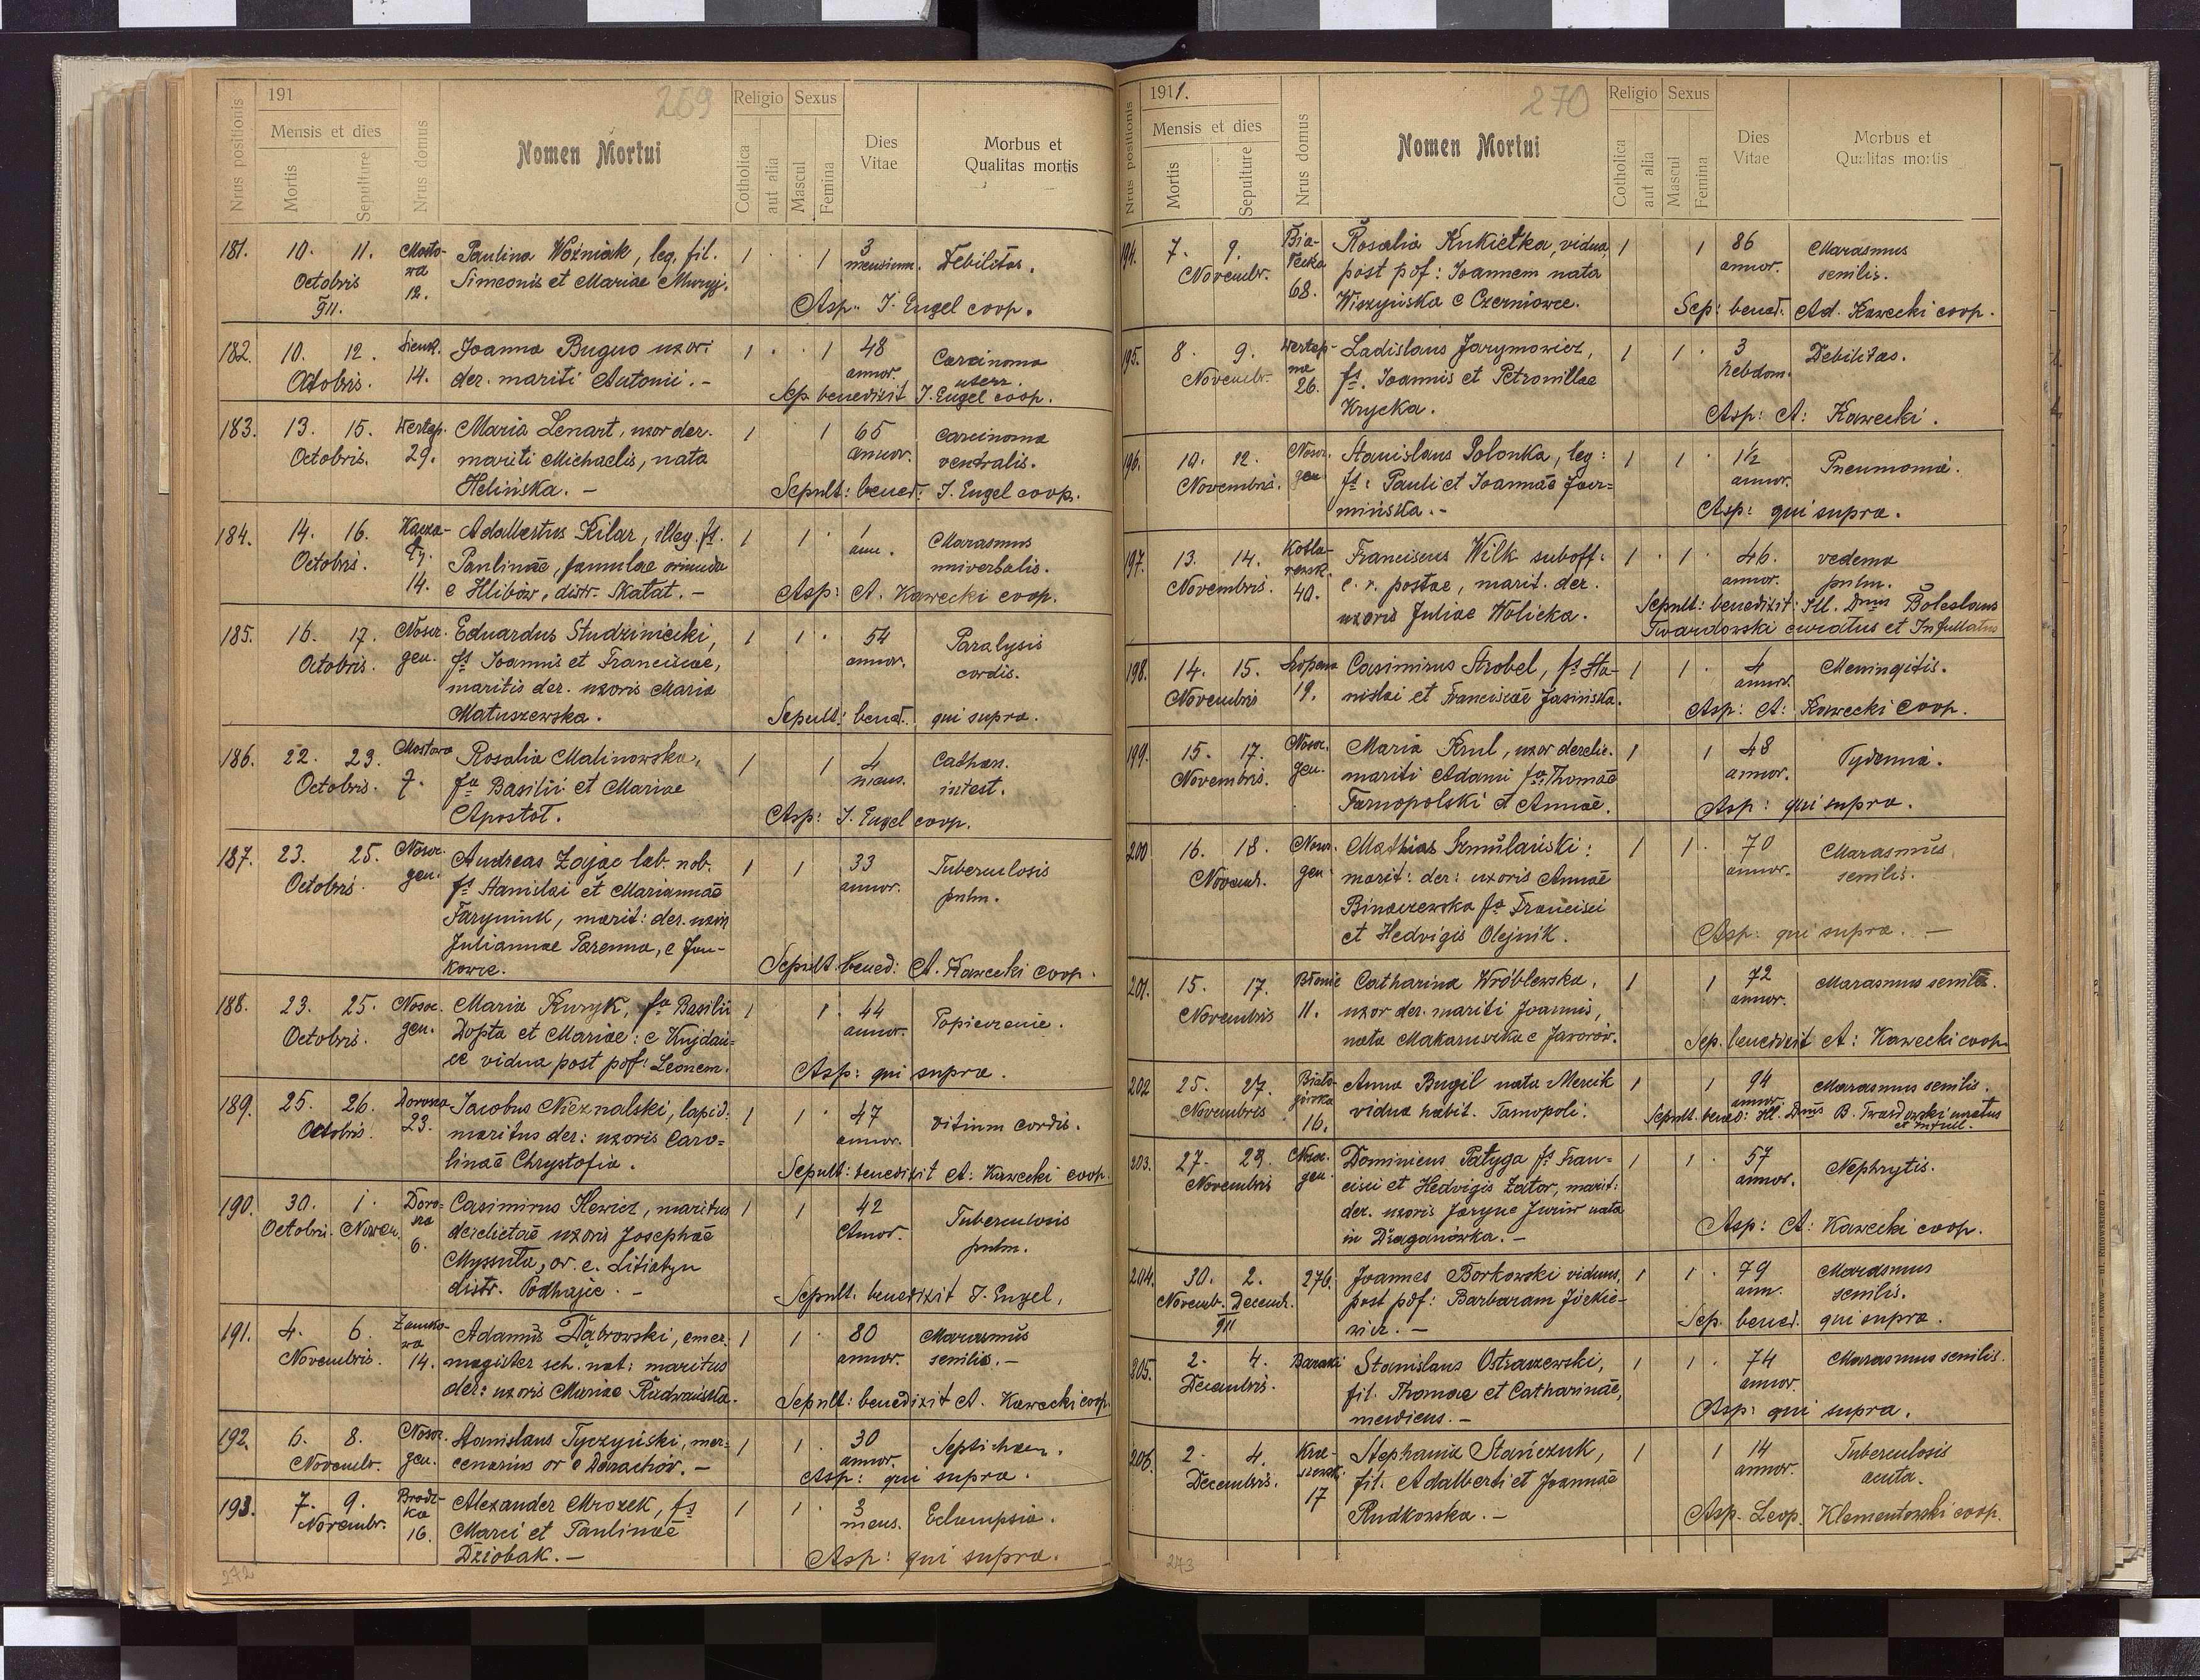 191
269
Nrus positionis
Mensis et dies
Mortis
Sepulture
Nrus domus
Nomen Mortui
Religio
Catholica
aut alia
Sexus
Mascul
Femina
Dies
Vitae
Morbus et
Qualitas mortis
181. 10. 11. Mosto- Paulina Woźniak, leg. fil. 1 1 3 Debilitas.
Octobris wa Simeonis et Mariae mensium.
911. 12. Asp. J. Engel coop.
182. 10. 12. Sienk. Joanna Buguo uxor 1 1 48 Carcinoma
Octobris. 14. der. mariti Antonii. - annor. uteri.
Sep. benedixit J. Engel coop.
183. 13. 15. Wertep. Maria Lenart, uxor der. 1 1 65 Carcinoma
Octobris. 29. mariti Michaelis, nata annor. ventralis.
Helińska. - Sepult: bened: J. Engel coop.
184. 14. 16. Kacza- Adalbertus Kilar, illeg. fs. 1 1 1 Marasmus
Octobris. ły. Paulinae, famulae oriunda ann. universalis.
14. e Hlibów, distr. Skałat. - Asp: A. Kawecki coop.
185. 16. 17. Nosoc. Eduardus Studziniecki, 1 1 54 Paralysis
Octobris. gen. fs Joannis et Franciscae, annor. cordis.
maritis der. uxoris Maria
Matuszewska. Sepult: bened. qui supra.
186. 22. 23. Mostowa Rosalia Malinowska, 1 1 4 Cathar.
Octobris. 7. fa Basilii et Mariae mens. intest.
Apostoł. Asp: J. Engel coop.
187. 23. 25. Nosoc. Andreas Zając lab. nob. 1 1 33 Tuberculosis
Octobris. gen. fs Stanislai et Mariannae annor. pulm.
Faryniuk, marit: der. uxoris
Juliannae Parenna, e Jan-
kowce. Sepult. bened: A. Kawecki coop.
188. 23. 25. Nosoc. Maria Kuryk, fa Basilii 1 1 44 Popierenie.
Octobris. gen. Dopta et Mariae: e Kujdań- annor.
ce vidua post pdf: Leonem. Asp: qui supra.
189. 25. 26. Dorosza Jacobus Nieznalski, lapid. 1 1 47 Vitium cordis.
Octobris. 23. maritus der: uxoris Caro- annor.
linae Chrystofia. Sepult: benedixit A: Kawecki coop.
190. 30. 1. Doro- Casimirus Hewicz, maritus 1 1 42 Tuberculosis
Octobri. Noven. sza derelictae uxoris Josephae Annor. pulm.
6. Myssuła, or. e. Litiatyn
distr. Podhajce. - Sepult: benedixit J. Engel,
191. 4. 6. Zamko- Adamus Dąbrowski, emer. 1 1 80 Marasmus
Novembris. wa magister sch. nat: maritus annor. senilis. -
14. der: uxoris Mariae Rudrańska. Sepult: benedixit A. Kawecki coop.
192. 6. 8. Nosoc. Stanislaus Tyczyński, mer- 1 1 30 Septichaem.
Novembr. gen. cenarius or e Darachów. - annor.
Asp: qui supra.
193. 7. 9. Brodz- Alexander Mrozek, fs 1 1 3 Eclampsia.
Novembr. ka Marci et Paulinae mens.
16. Dziobak. - Asp: qui supra.
272
1911.
270
Nrus positionis
Mensis et dies
Mortis
Sepulture
Nrus domus
Nomen Mortui
Religio
Catholica
aut alia
Sexus
Mascul
Femina
Dies
Vitae
Morbus et
Qualitas mortis
194. 7. 9. Bia- Rosalia Kukiełka, vidua, 1 1 86 Marasmus
Novembr. łecka post pdf: Joannem nata annor. senilis.
68. Wiszyńska e Czerniowce. Sep: bened. Ad. Kawecki coop.
195. 8. 9. Wertep- Ladislaus Jarymowicz, 1 1 3 Debilitas.
Novembr. na fs. Joannis et Petronillae hebdom.
26. Krycka. Asp: A: Kawecki.
196. 10. 12. Nosoc. Stanislaus Polonka, leg: 1 1 1½ Pneumonia.
Novembris. gen. fs: Pauli et Joannae Jaer- annor.
mińska. - Asp: qui supra.
197. 13. 14. Kotla- Franciscus Wilk suboff: 1 1 46. oedema
Novembris. rewsk. c. r. postae, marit. der. annor. pulm.
40. uxoris Juliae Wolicka. Sepult: benedixit: Ill. Dnus Boleslaus
Twardowski curatus et Infullatus
198. 14. 15. Szopena Casimirus Strobel, fs Sta- 1 1 4 Meningitis.
Novembris 19. nislai et Franciscae Jasińska. annor.
Asp: A: Kawecki coop.
199. 15. 17. Nosoc. Maria Krul, uxor derelic. 1 1 48 Tydemia.
Novembris. gen. mariti Adami fa Thomae annor.
Tarnopolski et Annae. Asp: qui supra.
200 16. 18. Nosoc. Mathias Szmulański: 1 1 70 Marasmus
Novemb. gen. marit: der: uxoris Annae annor. senilis.
Binaczewska fa Francisci
et Hedvigis Olejnik. Asp: qui supra. -
201. 15. 17. Błonie Catharina Wróblewska, 1 1 72 Marasmus senilis.
Novembris 11. uxor der. mariti Joannis, annor.
nata Makaruszka e Jaworów. Sep. benedixit A: Kawecki coop.
202 25. 27. Biało- Anna Bugil nata Mercik 1 1 94 Marasmus senilis.
Novembris górska vidua habit. Tarnopoli. annor.
16. Sepult. bened: Ill. Dnus B. Twardowski curatus
et infull.
203. 27. 29. Nosoc. Dominicus Patyga fs Fran- 1 1 57 Nephrytis.
Novembris gen. cisci et Hedvigis Zator, marit: annor.
der. uxoris Jaryne Juriw nata
in Draganówka. - Asp: A: Kawecki coop.
204. 30. 2. 276. Joannes Borkowski viduus, 1 1 79 Marasmus
Novemb. Decemb. post pdf: Barbaram Józkie- ann. senilis.
911 wicz. - Sep. bened. qui supra.
205. 2. 4. Baraki Stanislaus Ostraszewski, 1 1 74 Marasmus senilis.
Decembris. fil. Thomae et Catharinae, annor.
mendicus. - Asp: qui supra.
206. 2. 4. Kra- Stephania Stańczuk, 1 1 14 Tuberculosis
Decembris. szewsk. fil. Adalberti et Joannae annor. acuta.
17 Rudkowska. - Asp. Leop. Klementowski coop.
273